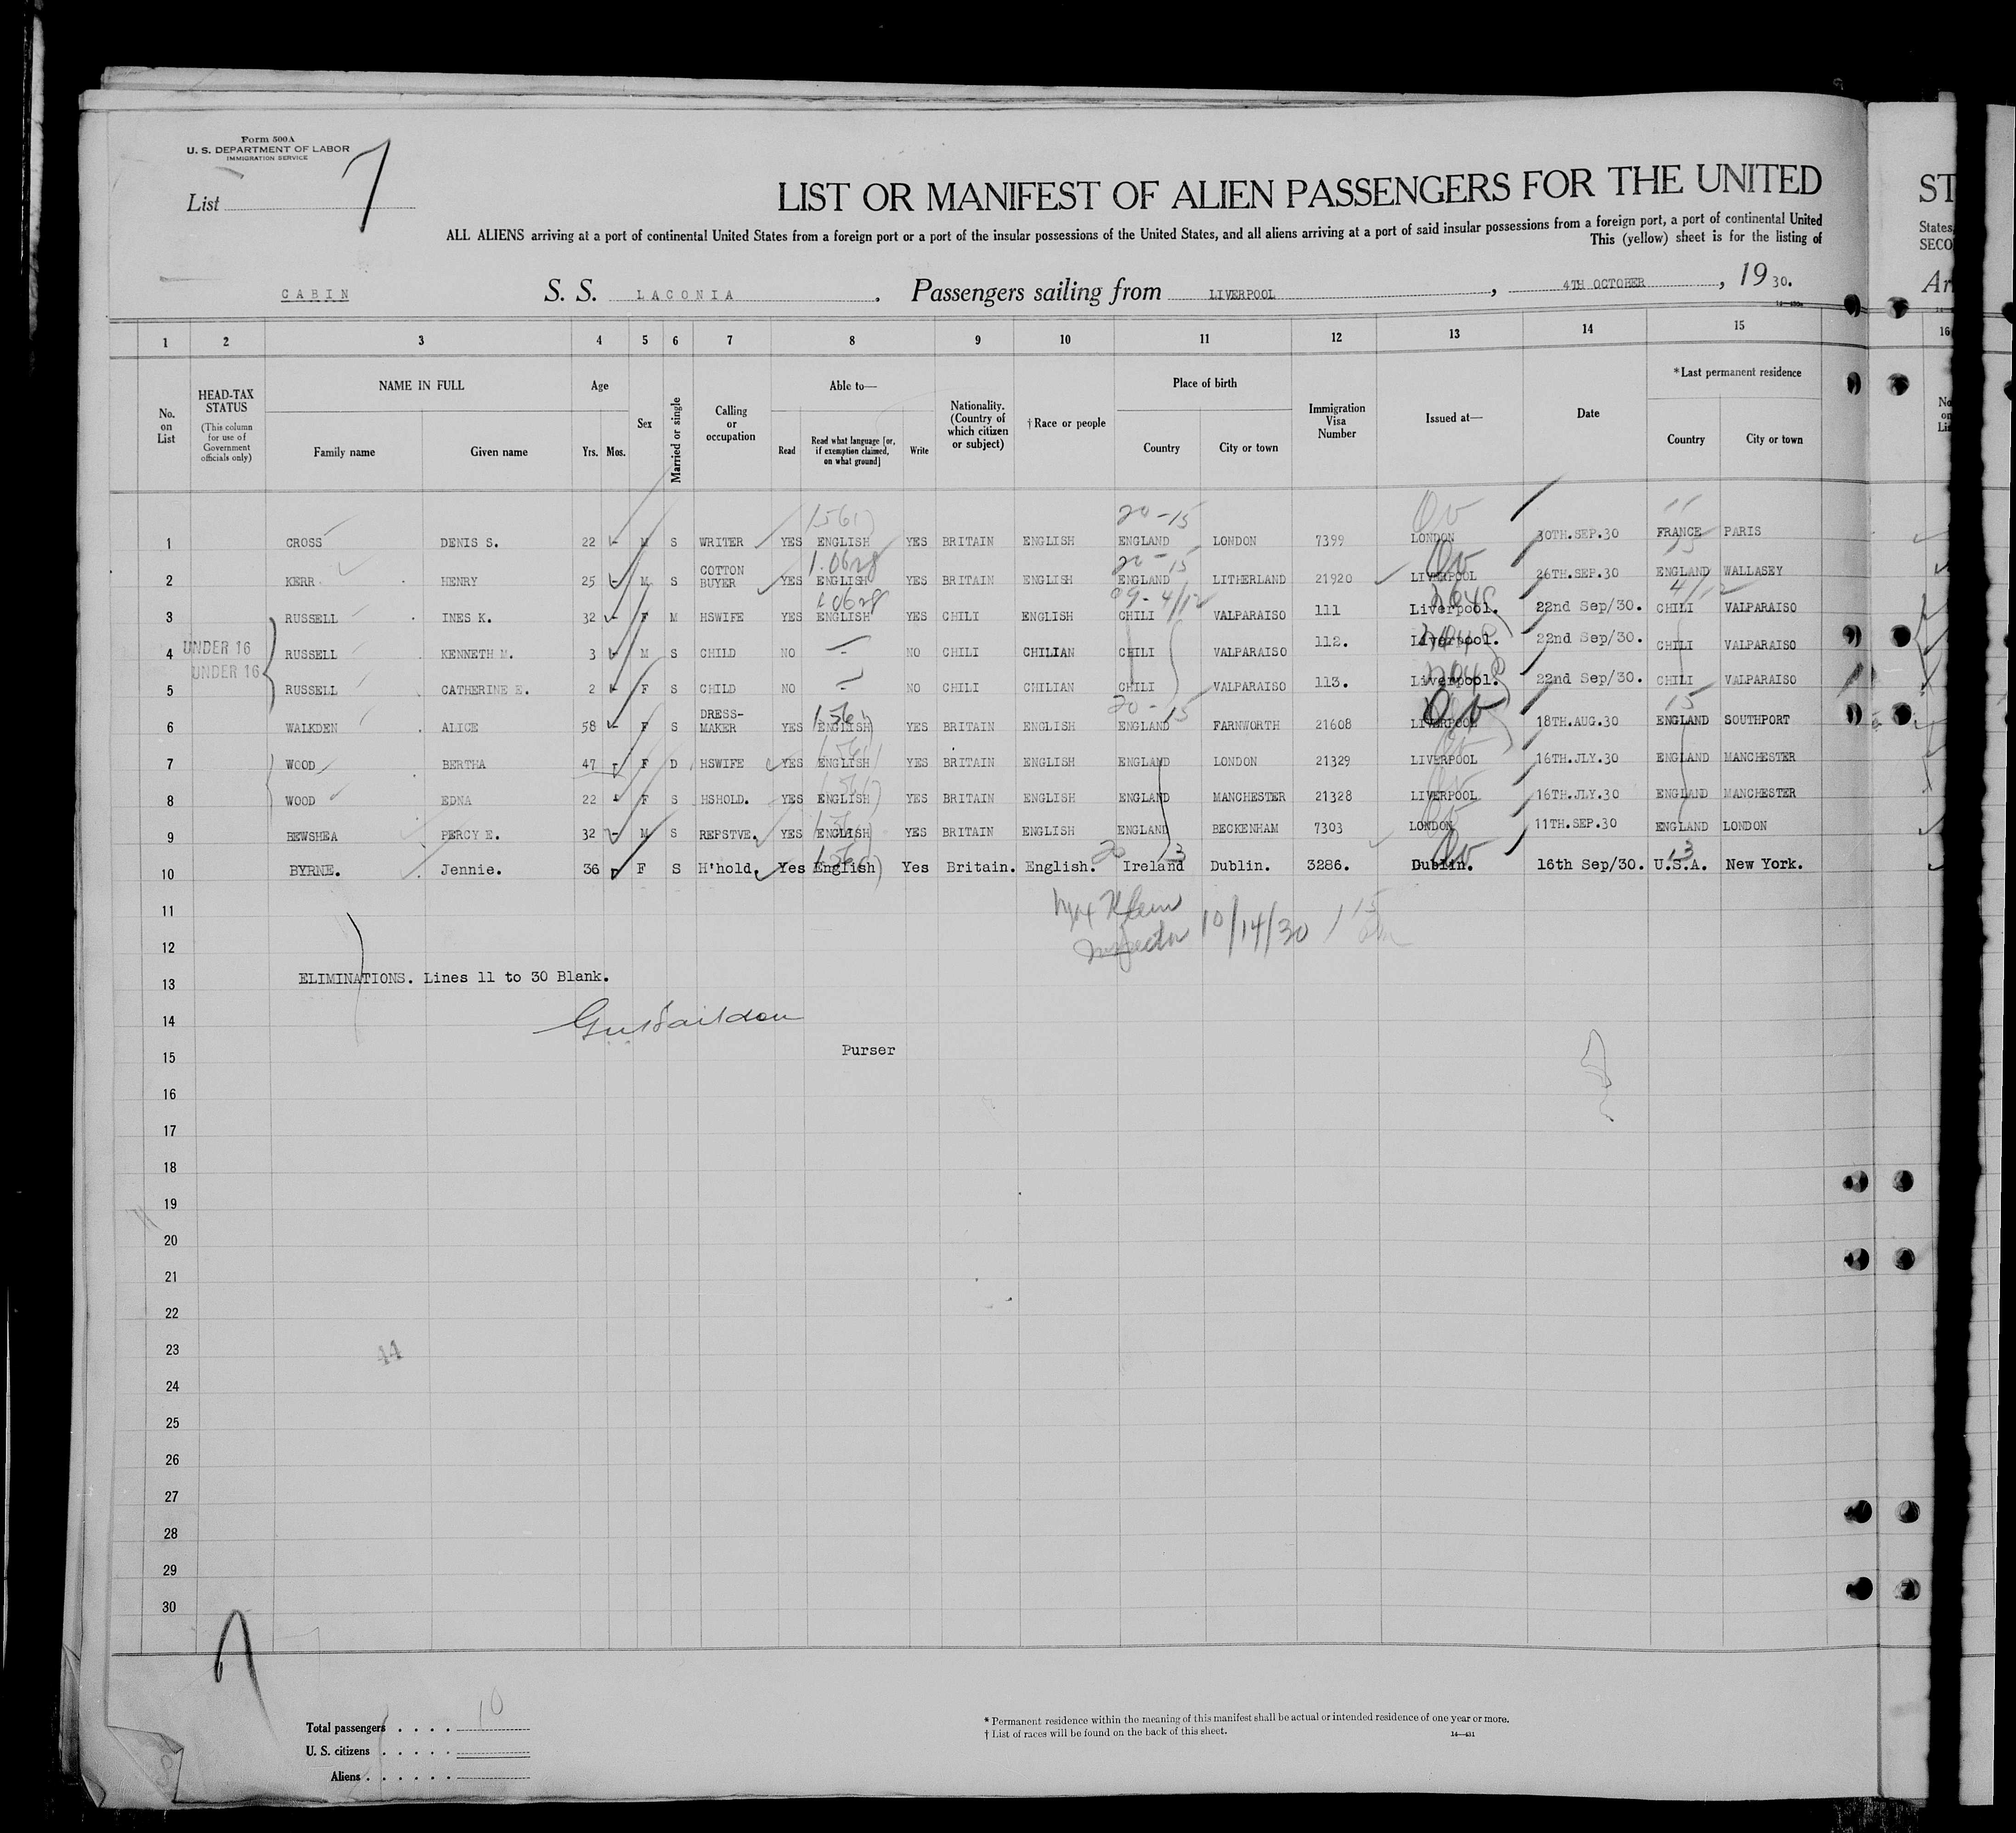 Form 500A
U. S. DEPARTMENT OF LABOR
IMMIGRATION SERVICE
List 7
LIST OR MANIFEST OF ALIEN PASSENGERS FOR THE UNITED ST
ALL ALIENS arriving at a port of continental United States from a foreign port or a port of the insular possessions of the United States, and all aliens arriving at a port of said insular possessions from a foreign port, a port of continental United States,
This (yellow) sheet is for the listing of SECO
CABIN S. S. LACONIA . Passengers sailing from LIVERPOOL , 4TH OCTOBER , 19 30. Ar
1 2 3 4 5 6 7 8 9 10 11 12 13 14 15 16
No. on List
HEAD-TAX STATUS (This column for use of Government officials only)
NAME IN FULL Family name Given name
Age Yrs. Mos.
Sex
Married or single
Calling or occupation
Able to— Read Read what language [or, if exemption claimed, on what ground] Write
Nationality. (Country of which citizen or subject)
†Race or people
Place of birth Country City or town
Immigration Visa Number
Issued at—
Date
*Last permanent residence Country City or town
No. on Li
20-15 11
1 CROSS DENIS S. 22 M S WRITER YES ENGLISH YES BRITAIN ENGLISH ENGLAND LONDON 7399 LONDON 30TH.SEP.30 FRANCE PARIS
20-15 15
2 KERR HENRY 25 M S COTTON BUYER YES ENGLISH YES BRITAIN ENGLISH ENGLAND LITHERLAND 21920 LIVERPOOL 26TH.SEP.30 ENGLAND WALLASEY
09-4/12 4/12
3 RUSSELL INES K. 32 F M HSWIFE YES ENGLISH YES CHILI ENGLISH CHILI VALPARAISO 111 Liverpool. 22nd Sep/30. CHILI VALPARAISO
4 UNDER 16 RUSSELL KENNETH M. 3 M S CHILD NO - NO CHILI CHILIAN CHILI VALPARAISO 112. Liverpool. 22nd Sep/30. CHILI VALPARAISO
5 UNDER 16 RUSSELL CATHERINE E. 2 F S CHILD NO - NO CHILI CHILIAN CHILI VALPARAISO 113. Liverpool. 22nd Sep/30. CHILI VALPARAISO
20-15 15
6 WALKDEN ALICE 58 F S DRESS-MAKER YES ENGLISH YES BRITAIN ENGLISH ENGLAND FARNWORTH 21608 LIVERPOOL 18TH.AUG.30 ENGLAND SOUTHPORT
7 WOOD BERTHA 47 F D HSWIFE YES ENGLISH YES BRITAIN ENGLISH ENGLAND LONDON 21329 LIVERPOOL 16TH.JLY.30 ENGLAND MANCHESTER
8 WOOD EDNA 22 F S HSHOLD. YES ENGLISH YES BRITAIN ENGLISH ENGLAND MANCHESTER 21328 LIVERPOOL 16TH.JLY.30 ENGLAND MANCHESTER
9 BEWSHEA PERCY E. 32 M S REPSTVE. YES ENGLISH YES BRITAIN ENGLISH ENGLAND BECKENHAM 7303 LONDON 11TH.SEP.30 ENGLAND LONDON
20 13 13
10 BYRNE. Jennie. 36 F S H'hold. Yes English Yes Britain. English. Ireland Dublin. 3286. Dublin. 16th Sep/30. U.S.A. New York.
11
Inspector 10/14/30
12
13 ELIMINATIONS. Lines 11 to 30 Blank.
14
15 Purser
16
17
18
19
20
21
22
23
44
24
25
26
27
28
29
30
Total passengers . . . . 10
U. S. citizens . . . . .
Aliens . . . . . .
* Permanent residence within the meaning of this manifest shall be actual or intended residence of one year or more.
† List of races will be found on the back of this sheet.
14—431